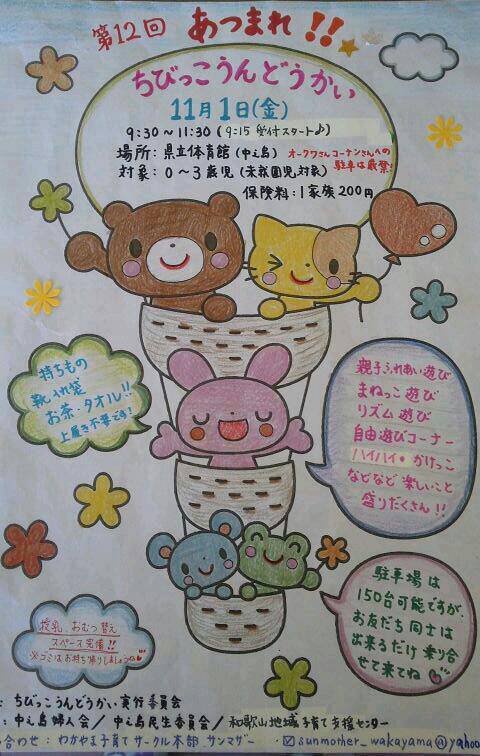 第12回 あつまれ!!
ちびっこうんどうかい
11月1日(金)
9:30~11:30(9:15 受付スタート♪)
場所:県立体育館(中之島) オークワさんコーナンさんへの駐車は厳禁!
対象:0~3歳児(未就園児対象)
保険料:1家族200円
持ちもの
靴入れ袋
お茶・タオル!!
上履き不要です!
親子ふれあい遊び
まねっこ遊び
リズム遊び
自由遊びコーナー
ハイハイ・かけっこ
などなど楽しいこと
盛りだくさん!!
授乳、おむつ替え
スペース完備!!
※ゴミはお持ち帰りしましょうね
駐車場は
150台可能ですが、
お友だち同士は
出来るだけ乗り合
せて来てね♡
: ちびっこうんどうかい実行委員会
: 中之島婦人会/中之島民生委員会/和歌山地域子育て支援センター
い合わせ: わかやま子育てサークル本部 サンマザー ✉sunmother_wakayama@yahoo